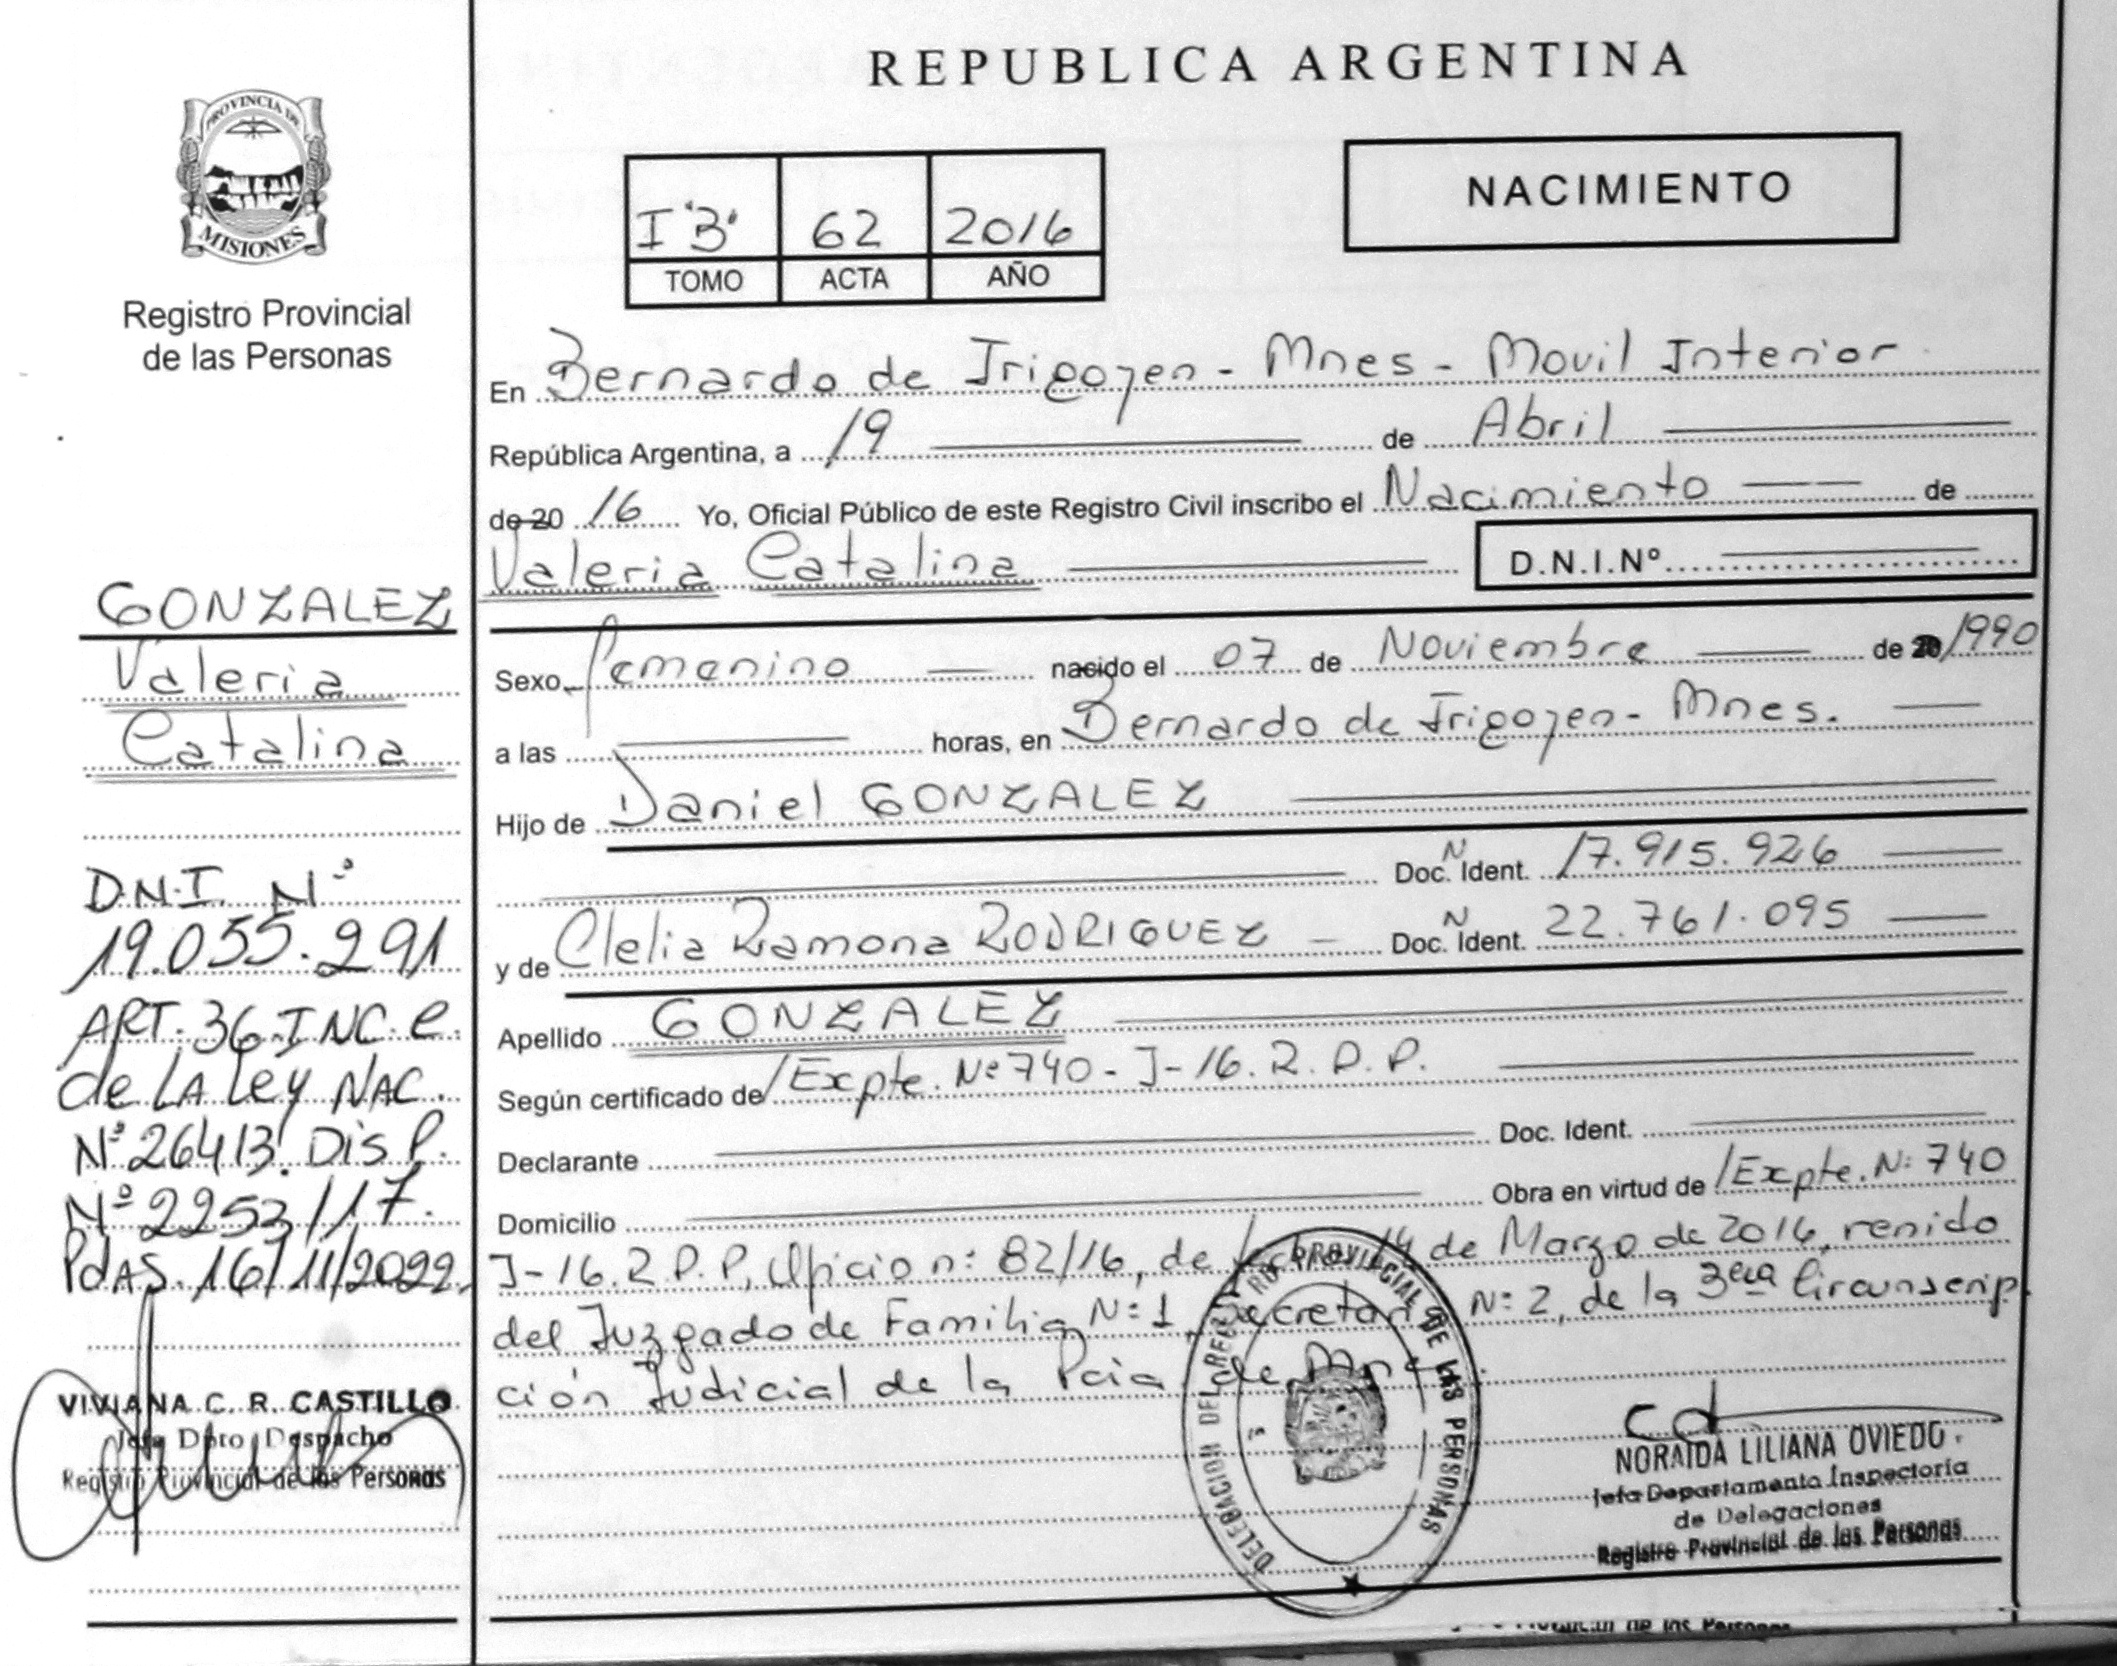 REPUBLICA ARGENTINA
PROVINCIA DE
MISIONES
Registro Provincial
de las Personas
I "B" 62 2016
TOMO ACTA AÑO
NACIMIENTO
En Bernardo de Irigoyen - Mnes - Movil Interior
República Argentina, a 19 de Abril
de 20 16 Yo, Oficial Público de este Registro Civil inscribo el Nacimiento de
Valeria Catalina D.N.I.Nº
Sexo femenino nacido el 07 de Noviembre de 20 1990
a las horas, en Bernardo de Irigoyen - Mnes.
Hijo de Daniel GONZALEZ
Doc. N Ident. 17.915.926
y de Clelia Ramona RODRIGUEZ Doc. N Ident. 22.761.095
Apellido GONZALEZ
Según certificado de /Expte. Nº 740 - J - 16. R. P. P.
Declarante Doc. Ident.
Domicilio Obra en virtud de /Expte. N: 740
J-16.R.P.P, Oficio n: 82/16, de fecha 14 de Marzo de 2016, renido
del Juzgado de Familia N: 1, Secretaria N: 2, de la 3era Circunscrip
ción Judicial de la Pcia de Mnes.
GONZALEZ
Valeria
Catalina
D.N.I. Nº
19.055.291
ART. 36 INC. e
de LA Ley NAC.
Nº 26413. DISP.
Nº 2253/17.
PdAS. 16/11/2022.
VIVIANA C. R. CASTILLO
Jefa Dpto Despacho
Registro Provincial de las Personas
DELEGACION DEL REGISTRO PROVINCIAL DE LAS PERSONAS
NORAIDA LILIANA OVIEDO
Jefa Departamento Inspectoría
de Delegaciones
Registro Provincial de las Personas
de las Personas